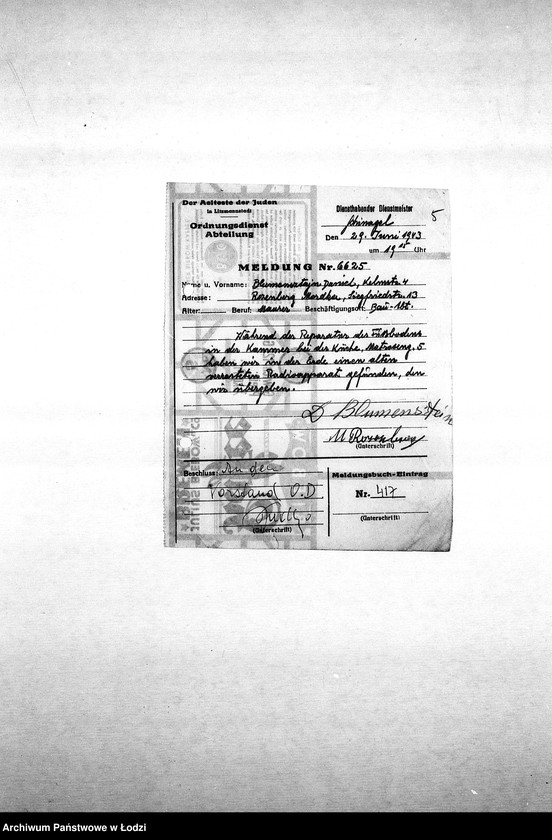 Der Aelteste der Juden
in Litzmannstadt
Ordnungsdienst
Abteilung
Diensthabender Dienstmeister
5
Den 29. Juni 1943
um 19 Uhr
MELDUNG Nr. 6625
Name u. Vorname: Blumensztajn Dawid, Kelmstr. 4
Adresse: Rosenberg Mordka, Siegfriedstr. 13
Alter: Beruf: Maurer Beschäftigungsort: Bau-Abt.
Während der Reparatur des Fußbodens
in der Kammer bei der Küche, Matroseng. 5
haben wir in der Erde einen alten
verrosteten Radioapparat gefunden, den
wir übergeben.
D Blumensztein
M Rosenberg
(Unterschrift)
Beschluss: An den
Vorstand O.D
(Unterschrift)
Meldungsbuch-Eintrag
Nr. 417
(Unterschrift)
Archiwum Państwowe w Łodzi